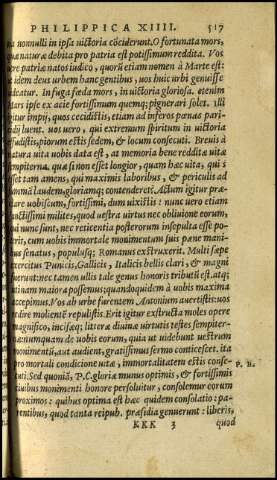 PHILIPPICA XIIII. 517
na nonnulli in ipsa uictoria cōciderunt. O fortunata mors,
quæ naturæ debita pro patria est potissimum reddita. Vos
uero patria natos iudico, quorū etiam nomen à Marte est:
ut idem deus urbem hanc gentibus, uos huic urbi genuisse
uideatur. In fuga fœda mors, in uictoria gloriosa. etenim
Mars ipse ex acie fortissimum quemq; pignerari solet. illi
igitur impij, quos cecidistis, etiam ad inferos pœnas pari-
cidij luent. uos uero, qui extremum spiritum in uictoria
effudistis, piorum estis sedem, & locum consecuti. Breuis à
natura uita uobis data est, at memoria bene redditæ uitæ
sempiterna. quæ si non esset longior, quàm hæc uita, quis
esset tam amens, qui maximis laboribus, & periculis ad
summā laudem, gloriamq; contenderet? Actum igitur præ-
clare uobiscum, fortissimi, dum uixistis: nunc uero etiam
sanctissimi milites, quod uestra uirtus nec obliuione eorum,
qui nunc sunt, nec reticentia posterorum insepulta esse po-
terit, cum uobis immortale monimentum suis pæne mani-
bus senatus, populusq; Romanus exstruxerit. Multi sæpe
exercitus Punicis, Gallicis, Italicis bellis clari, & magni
fuerunt: nec tamen ullis tale genus honoris tributū est. atq;
utinam maiora possemus; quandoquidem à uobis maxima
accepimus. Vos ab urbe furentem Antonium auertistis: uos
redire molientē repulistis. Erit igitur exstructa moles opere
magnifico, incisæq; litteræ diuinæ uirtutis testes sempiter-
næ: nunquamq; de uobis eorum, qui aut uidebunt uestrum
monimentū, aut audient, gratissimus sermo conticescet. ita
pro mortali conditione uitæ, immortalitatem estis conse-
cuti. Sed quoniā, P.C. gloriæ munus optimis, & fortissimis
ciuibus monimenti honore persoluitur, consolemur eorum
proximos: quibus optima est hæc quidem consolatio: pa-
rentibus, quod tanta reipub. præsidia genuerunt: liberis,
KKK 3 quod